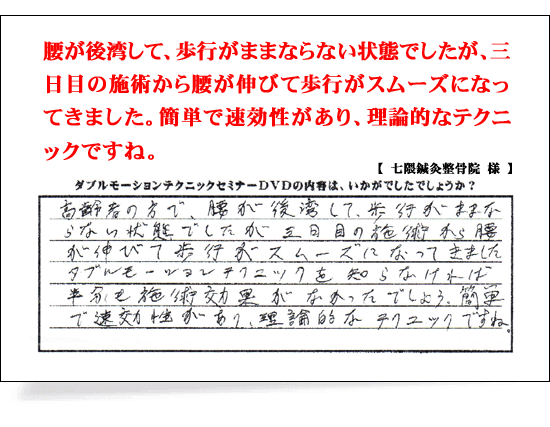 腰が後湾して、歩行がままならない状態でしたが、三
日目の施術から腰が伸びて歩行がスムーズになっ
てきました。簡単で速効性があり、理論的なテクニ
ックですね。
【 七隈鍼灸整骨院 様 】
ダブルモーションテクニックセミナーDVDの内容は、いかがでしたでしょうか？
高齢者の方で、腰が後湾して、歩行がままな
らない状態でしたが三日目の施術から腰
が伸びて歩行がスムーズになってきました
ダブルモーションテクニックを知らなければ
半分も施術効果がなかったでしょう、簡単
で速効性があり、理論的なテクニックですね。